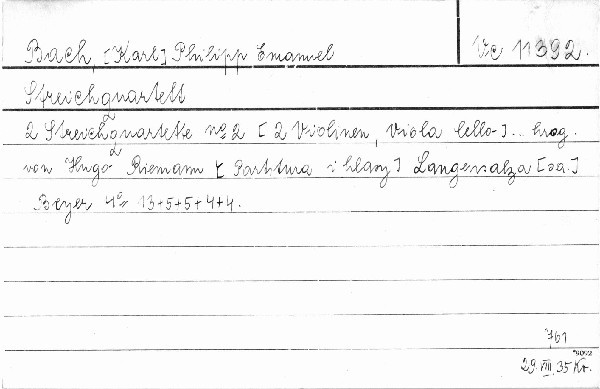 Bach, [Karl] Philipp Emanuel
Vc 11392.
Streichquartett
2 Streichquartette no 2 [2 Violinen, Viola Cello-]... hrag.
von Hugo Riemann [Partitura i hlasy] Langensalza [sa.]
Beyer 4° 13+5+5+4+4.
761
29.VIII.35 Kr.